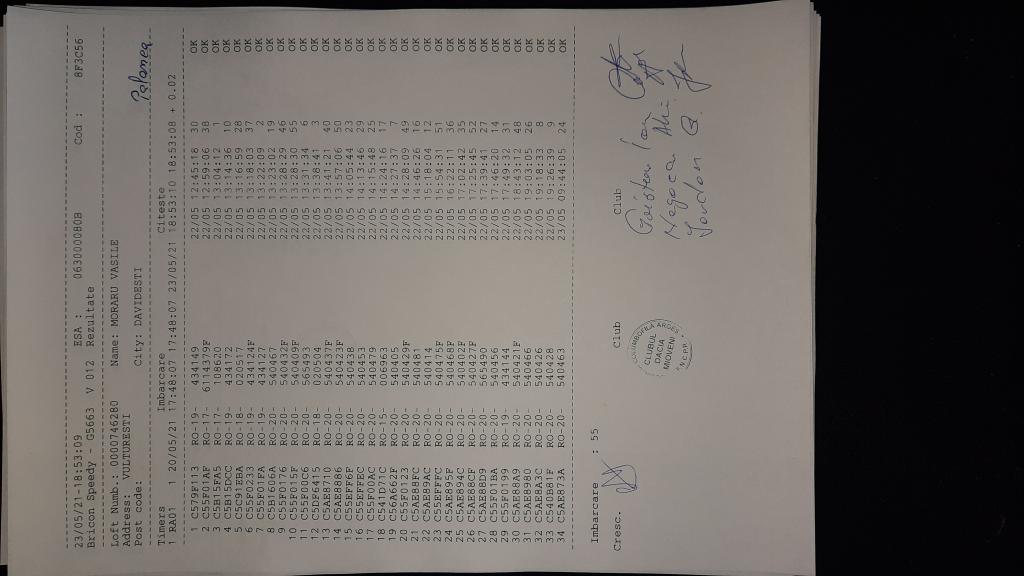 23/05/21-18:53:09 ESA : 063000080B Cod : 8F3C56
Bricon Speedy - G5663 V 012 Rezultate
Loft Numb.: 0000746280 Name: MORARU VASILE
Address: VULTURESTI
Post code: City: DAVIDESTI
Timers Imbarcare Citeste
1 RA01 1 20/05/21 17:48:07 17:48:07 23/05/21 18:53:10 18:53:08 + 0.02
1 C579F113 RO-19- 434149 22/05 12:45:18 30 OK
2 C55F01AF RO-17- 6114379F 22/05 12:59:06 38 OK
3 C5B15FA5 RO-17- 108620 22/05 13:04:12 1 OK
4 C5B15DCC RO-19- 434172 22/05 13:14:36 10 OK
5 C5C91EBA RO-18- 020517 22/05 13:16:59 28 OK
6 C55F0233 RO-19- 434142F 22/05 13:18:03 37 OK
7 C55F01FA RO-19- 434127 22/05 13:22:09 2 OK
8 C5B1606A RO-20- 540467 22/05 13:23:02 19 OK
9 C55F0176 RO-20- 540432F 22/05 13:28:29 46 OK
10 C55F015F RO-20- 540409F 22/05 13:28:30 55 OK
11 C55F00C6 RO-20- 565493 22/05 13:31:34 6 OK
12 C5DF6415 RO-18- 020504 22/05 13:38:41 3 OK
13 C5AE8710 RO-20- 540437F 22/05 13:41:21 40 OK
14 C5AE8886 RO-20- 540423F 22/05 13:57:06 50 OK
15 C55EFF6F RO-20- 540438 22/05 14:05:44 23 OK
16 C55EFFEC RO-20- 540453 22/05 14:13:46 29 OK
17 C55F00AC RO-20- 540479 22/05 14:15:48 25 OK
18 C541D71C RO-15- 006963 22/05 14:24:16 17 OK
19 C56A662F RO-20- 540405 22/05 14:27:37 7 OK
20 C55F0123 RO-20- 540429F 22/05 14:28:09 49 OK
21 C5AE88FC RO-20- 540481 22/05 14:46:26 16 OK
22 C5AE89AC RO-20- 540414 22/05 15:18:04 12 OK
23 C55EFFFC RO-20- 540475F 22/05 15:54:31 51 OK
24 C5AE895F RO-20- 540468F 22/05 16:22:11 36 OK
25 C5AE894C RO-20- 540402F 22/05 17:02:42 35 OK
26 C5AE88CF RO-20- 540427F 22/05 17:25:45 52 OK
27 C5AE88D9 RO-20- 565490 22/05 17:39:41 27 OK
28 C55F01BA RO-20- 540456 22/05 17:46:20 14 OK
29 C55F0199 RO-19- 434144 22/05 17:49:32 31 OK
30 C5AE88A9 RO-20- 540421F 22/05 18:43:12 48 OK
31 C5AE8980 RO-20- 540466 22/05 19:03:05 26 OK
32 C5AE8A3C RO-20- 540426 22/05 19:18:33 8 OK
33 C540B81F RO-20- 540428 22/05 19:26:39 9 OK
34 C5AE873A RO-20- 540463 23/05 09:44:05 24 OK
Imbarcare : 55
Cresc. Club Club
COLUMBOFILA ARGES
CLUBUL
DACIA
MIOVENI